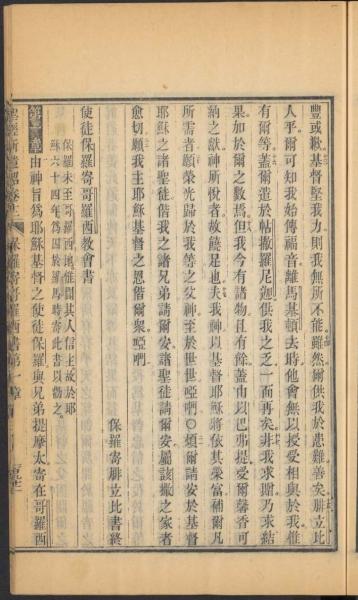 豐或歉基督堅我力則我無所不能雖然爾供我於患難善矣腓立比
人乎爾可知我始傳福音離馬其頓去時他會無以授受相與於我惟
有爾等蓋爾遣於帖撒羅尼迦供我之乏一而再矣非我求賜乃求結
果加於爾之數焉但我今有諸物且有餘蓋由以巴弗提受爾馨香可
納之獻神所悅者故饒足也夫我神以基督耶穌將依其榮富補爾凡
所需者願榮光歸於我等之父神至於世世啞㗑○煩爾請安於基督
耶穌之諸聖徒偕我之諸兄弟請爾安諸聖徒請爾安屬該撒之家者
愈切願我主耶穌基督之恩偕爾眾啞㗑
保羅寄腓立比書終
使徒保羅寄哥羅西教會書
保羅未至哥羅西地惟聞其人信主故於耶
穌六十四年為囚於羅馬時寄此書以勸之
第一章由神旨為耶穌基督之使徒保羅與兄弟提摩太寄在哥羅西
保羅寄哥羅西書第一章